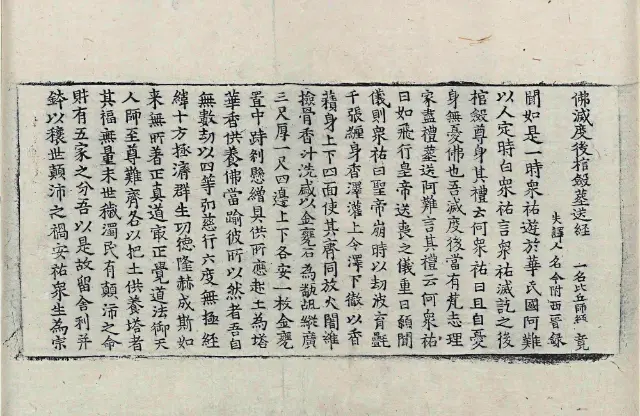 佛滅度後棺斂葬送經 一名比丘師經 竟
失譯人名今附西晉錄
聞如是一時眾祐遊於華氏國阿難
以人定時白眾祐言眾祐滅訖之後
棺斂尊身其禮云何眾祐曰且自憂
身無憂佛也吾滅度後當有梵志理
家盡禮葬送阿難言其禮云何眾祐
曰如飛行皇帝送喪之儀重曰願聞
儀則眾祐曰聖帝崩時以劫波育㲲
千張纏身香澤灌上令澤下徹以香
積身上下四面使其齊同放火闍維
撿骨香汁洗盛以金甕石為瓳縱廣
三尺厚一尺四邊上下各安一枚金甕
置中跱剎懸繒具供所應起土為塔
華香供養佛當踰彼所以然者吾自
無數劫以四等弘慈行六度無極經
緯十方拯濟群生功德隆赫成斯如
來無所著正真道最正覺道法御天
人師至尊難齊各以把土供養塔者
其福無量末世穢濁民有顛沛之命
財有五家之分吾以是故留舍利并
鉢以穰世顛沛之禍安祐眾生為宗